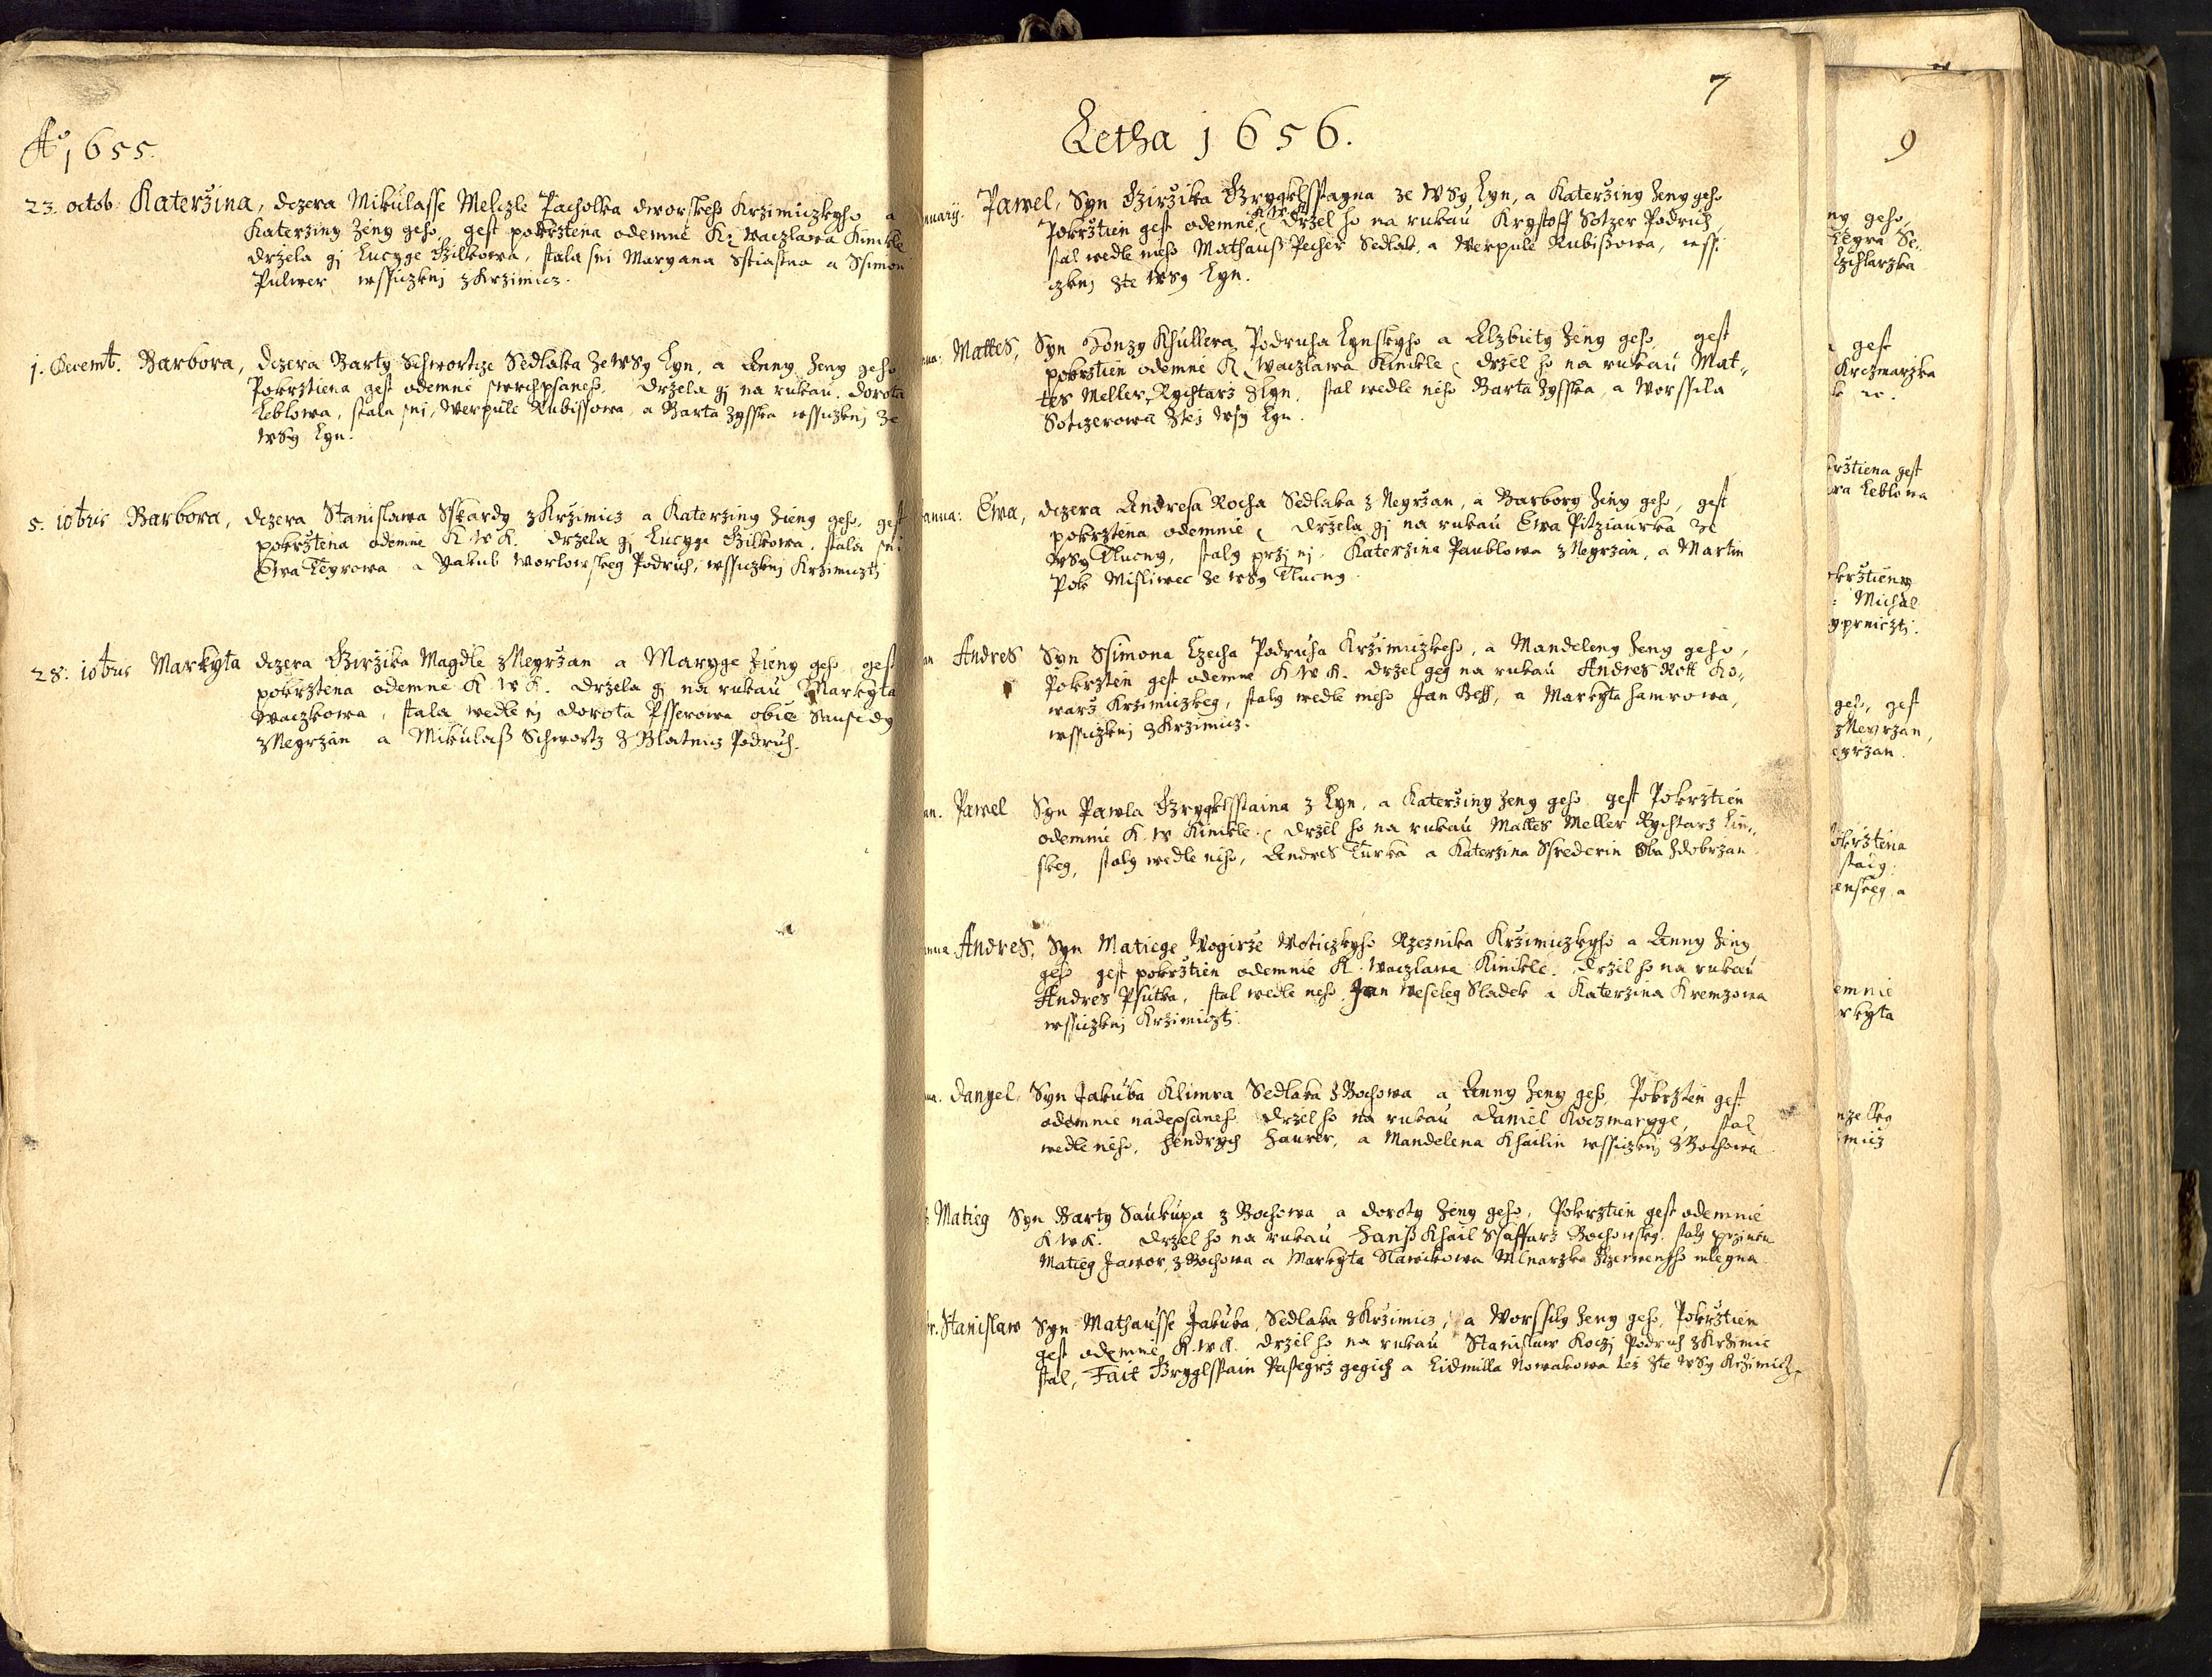 Aᵒ 1655.
23. octob: Katerzina, dczera Mikulasse Melczle Pacholka dworskeho Krzimiczkyho a
Katerziny Ženy geho, gest pokrztena odemně K: Waczlawa Kinckle
drzela gj Luczye Bilkowa, stala sni Maryana Sstiastna a Ssimon
Pulwer wssiczknj z Krzimicz.
1. Decemb. Barbora, dczera Barty Schwortze Sedlaka ze wsy Lyn, a Anny Ženy geho
Pokrztiena gest odemně swrchpsaneho. Drzela gj na rukau. Dorota
Leblowa, stala sni, Werpule Rubissowa, a Barta Zysska wssiczknj ze
wsy Lyn.
5. 10bris Barbora, dczera Stanislawa Sskardy z Krzimicz a Katerziny Zieny geho, gest
pokrztena odemne K W K. drzela gj Lucyge Bilkowa. stala sni
Ewa Teyrowa a Yakub Worlowskeg Podruh, wssiczknj Krzimicztj
28. 10bris Markyta dczera Girzika Magdle z Neyrzan a Maryge Zieny geho, gest
pokrztena odemne K W K. Drzela gj na rukau Markyta
Waczkowa, stala wedle nj Dorota Psserowa obie Sausedy
z Negrzan a Mikulaß Schwortz z Blatnicz Podruh.
7
Letha 1656.
nuarij. Pawel, Syn Girzika Brygklsstayna ze Wsy Lyn, a Katerziny Ženy geho
Pokrztien gest odemně K W K drzel ho na rukau Krystoff Sotzer Podruh,
stal wedle nieho Mathauß Pecher Sedlak, a Werpule Rubißowa, wssi
czknj Zte wsy Lyn.
nua: Mattes, Syn Honzy Khullera Podruha Lynskyho a Alzbiety Ženy geho, gest
pokrztien odemne K Waczlawa Kinckle drzel ho na rukau Mat„
tes Meller Rychtarz z Lyn, stal wedle neho Barta Zysska, a Worssila
Sotczerowa Ztej wsy Lyn.
anna: Ewa, dczera Andresa Rocha Sedlaka z Neyrzan, a Barbory Ženy geho, gest
pokrztena odemnie drzela gj na rukau Ewa Pitziaurka ze
wsy Tlucny, staly przj nj Katerzina Paublowa z Negrzan, a Martin
Pok Misliwec ze wsy Tlucny.
an Andres Syn Ssimona Czecha Podruha Krzimiczkeho, a Mandeleny Ženy geho,
Pokrzten gest odemne K W K. drzel geg na rukau Andres Rott Ko„
warz Krzimiczkeg, staly wedle neho Jan Beff, a Markyta Hamrowa,
wssiczknj z Krzimicz.
an. Pawel Syn Pawla Brygklsstaina z Lyn, a Katerziny Ženy geho gest Pokrztien
odemnie K. W Kinckle. drzel ho na rukau Mattes Meller Rychtarz Lin„
skeg, staly wedle nieho, Andres Turka a Katerzina Ssrederin Oba z Dobrzan.
nua. Andres, Syn Matiege Wogirze Woticzkyho Rzeznika Krzimiczkyho a Anny Zieny
geho gest pokrztien odemnie K. Waczlawa Kinckle. Drzel ho na rukau
Andres Psutka, stal wedle neho Jan Weseleg Sladek a Katerzina Kremzowa
wssiczknj Krzimicztj.
ua. Danyel Syn Jakuba Klimra Sedlaka z Bochowa a Anny Ženy geho, Pokrzten gest
odemnie nadepsaneho drzel ho na rukau Daniel Koczmarygge, stal
wedle neho, Hendrych Haurer, a Mandelena Khailin wssiczknj z Bochowa
Matieg Syn Barty Saukupa z Bochowa a Doroty Ženy geho, Pokrztien gest odemnie
K W K. Drzel ho na rukau Hanß Khail Ssaffarz Bochowskeg. staly przi nem
Matieg Jawor, z Bochowa a Markyta Slawikowa Mlnarzka Z Czerweneho mlegna
r. Stanislaw Syn Mathausse Jakuba, Sedlaka z Krzimicz, a Worssily Ženy geho, Pokrztien
gest odemně K. W K. drzel ho na rukau Stanislaw Koczj Podruh z Krzimic
stal, Fait Bryglsstain Pasteyrz gegich a Lidmilla Nowakowa též Zte wsy Krzimicz.
9
ny geho,
Teyra Se„
Czihlarzka
gest
Krczmarzka
krztiena gest
ra Leblowa
krztiena
Michal
gest
z Neyrzan,
egrzan.
okrztena
staly
enskeg a
emnie
rkyta
micz